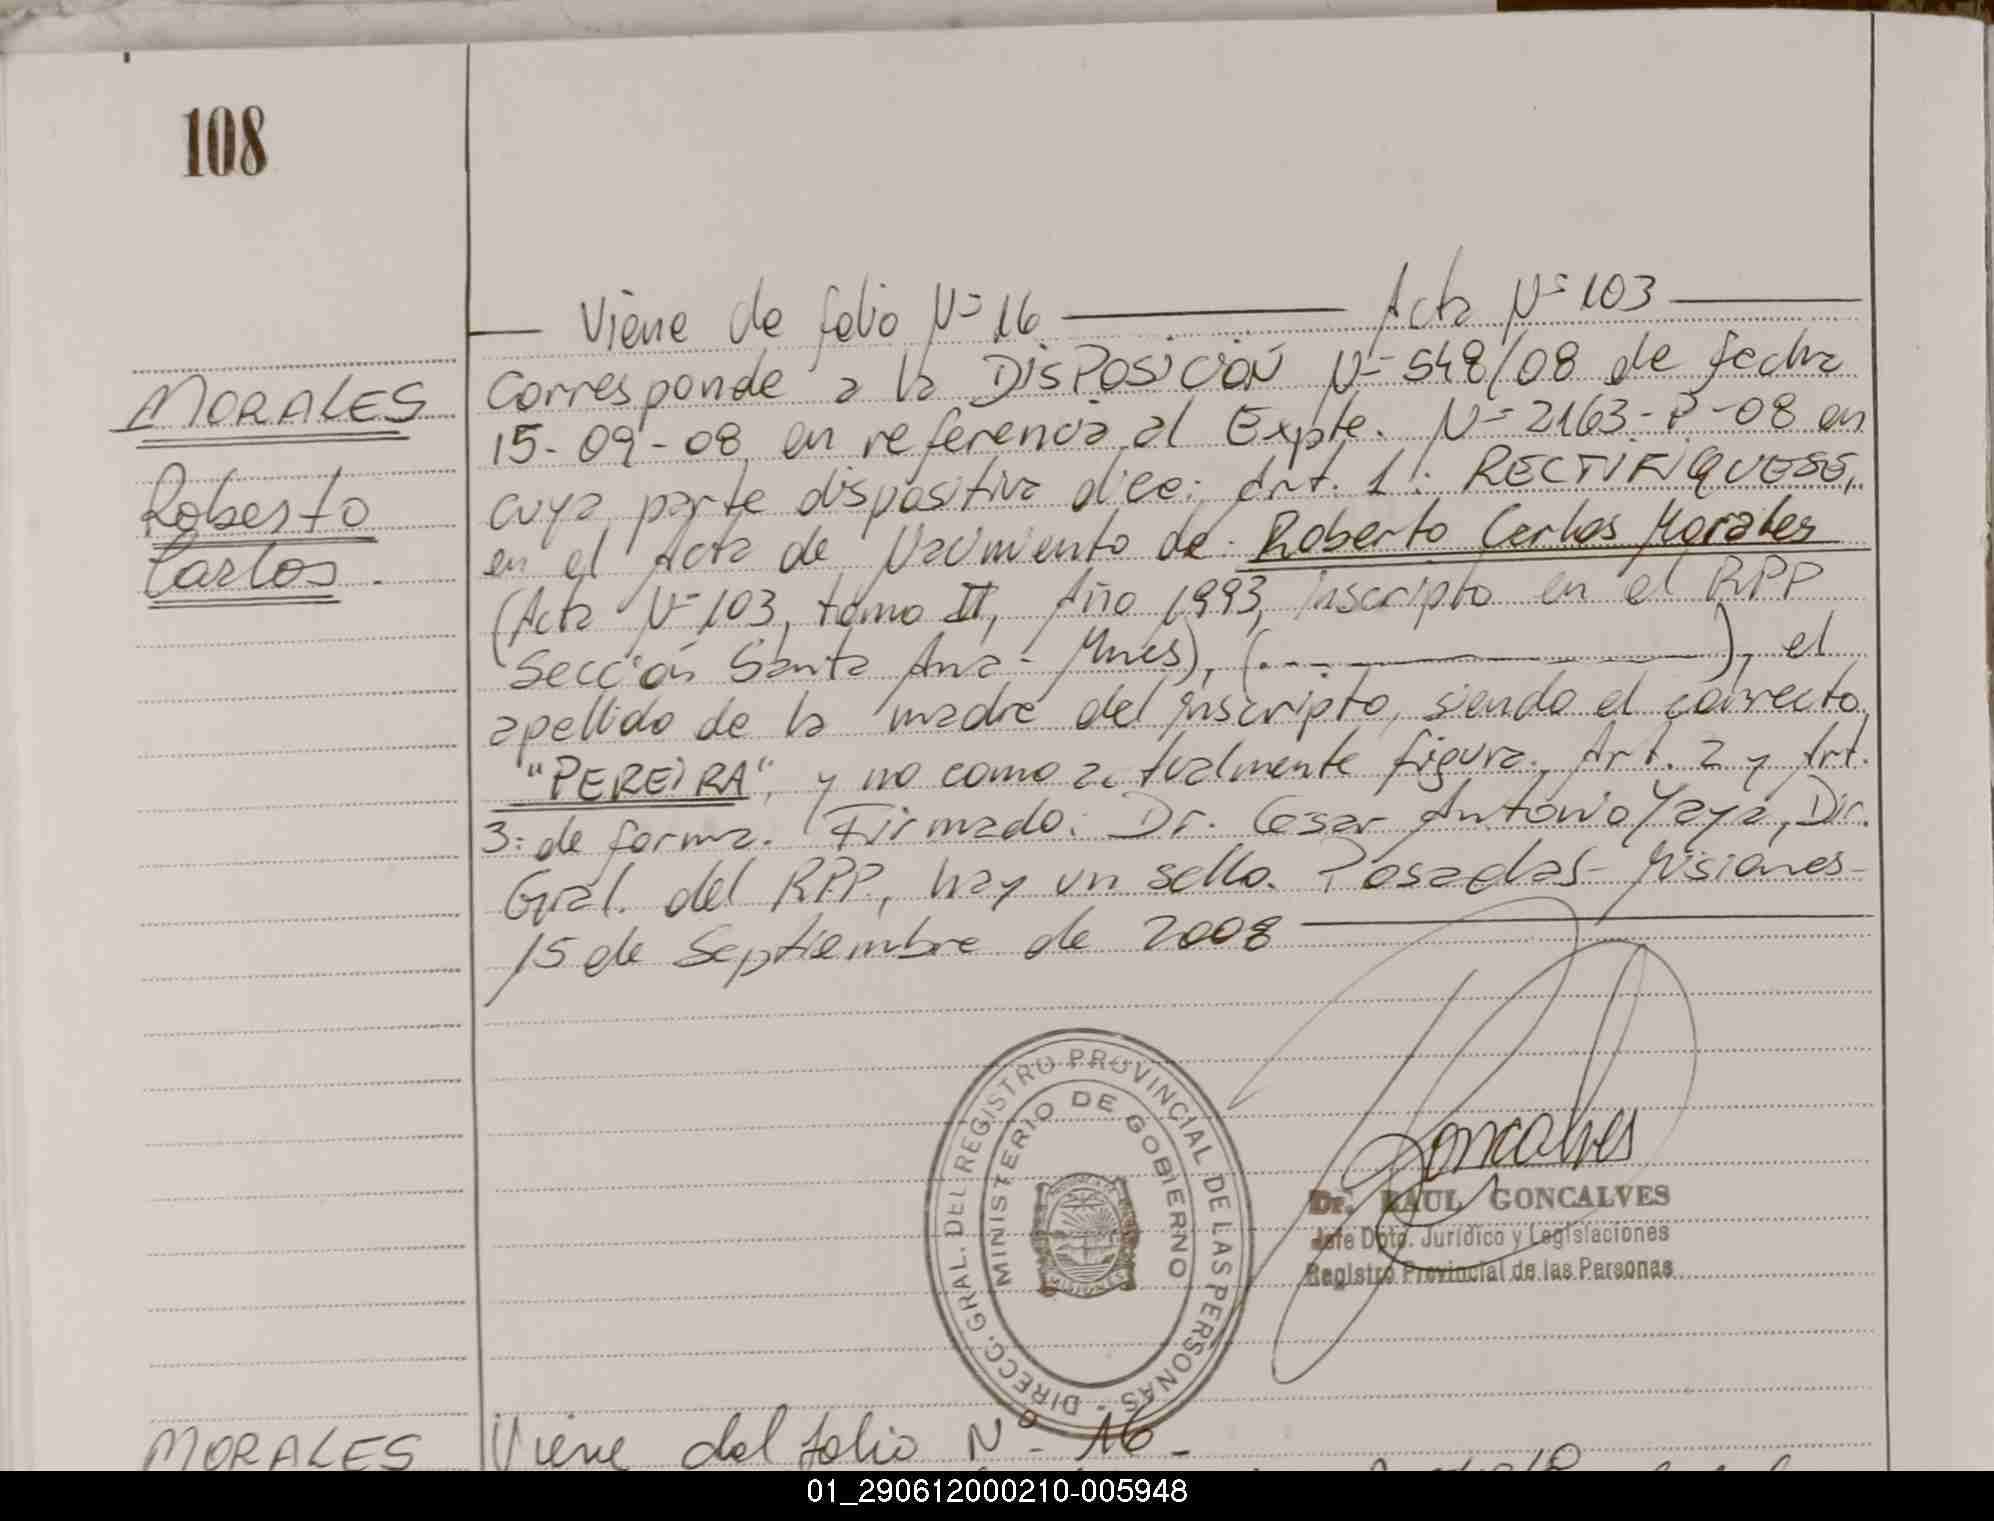 108
Viene de folio Nº 16 Acta Nº 103
MORALES
Roberto
Carlos.
Corresponde a la DISPOSICIÓN Nº 548/08 de fecha
15-09-08 en referencia al Expte. Nº 2163-P-08 en
cuya parte dispositiva dice: Art. 1: RECTIFIQUESE,
en el Acta de Nacimiento de: Roberto Carlos Morales
(Acta Nº 103, tomo II, Año 1993, inscripto en el RPP
Sección Santa Ana - Mnes), (...), el
apellido de la madre del inscripto, siendo el correcto
"PEREIRA", y no como actualmente figura. Art. 2 y Art.
3: de forma. Firmado: Dr. Cesar Antonio Yaya, Dir.
Gral. del RPP, hay un sello. Posadas - Misiones -
15 de Septiembre de 2008
DIRECC. GRAL. DEL REGISTRO PROVINCIAL DE LAS PERSONAS -
MINISTERIO DE GOBIERNO
MISIONES
Goncalves
Dr. RAUL GONCALVES
Jefe Dpto. Jurídico y Legislaciones
Registro Provincial de las Personas
MORALES
Viene del folio Nº - 16 -
01_290612000210-005948